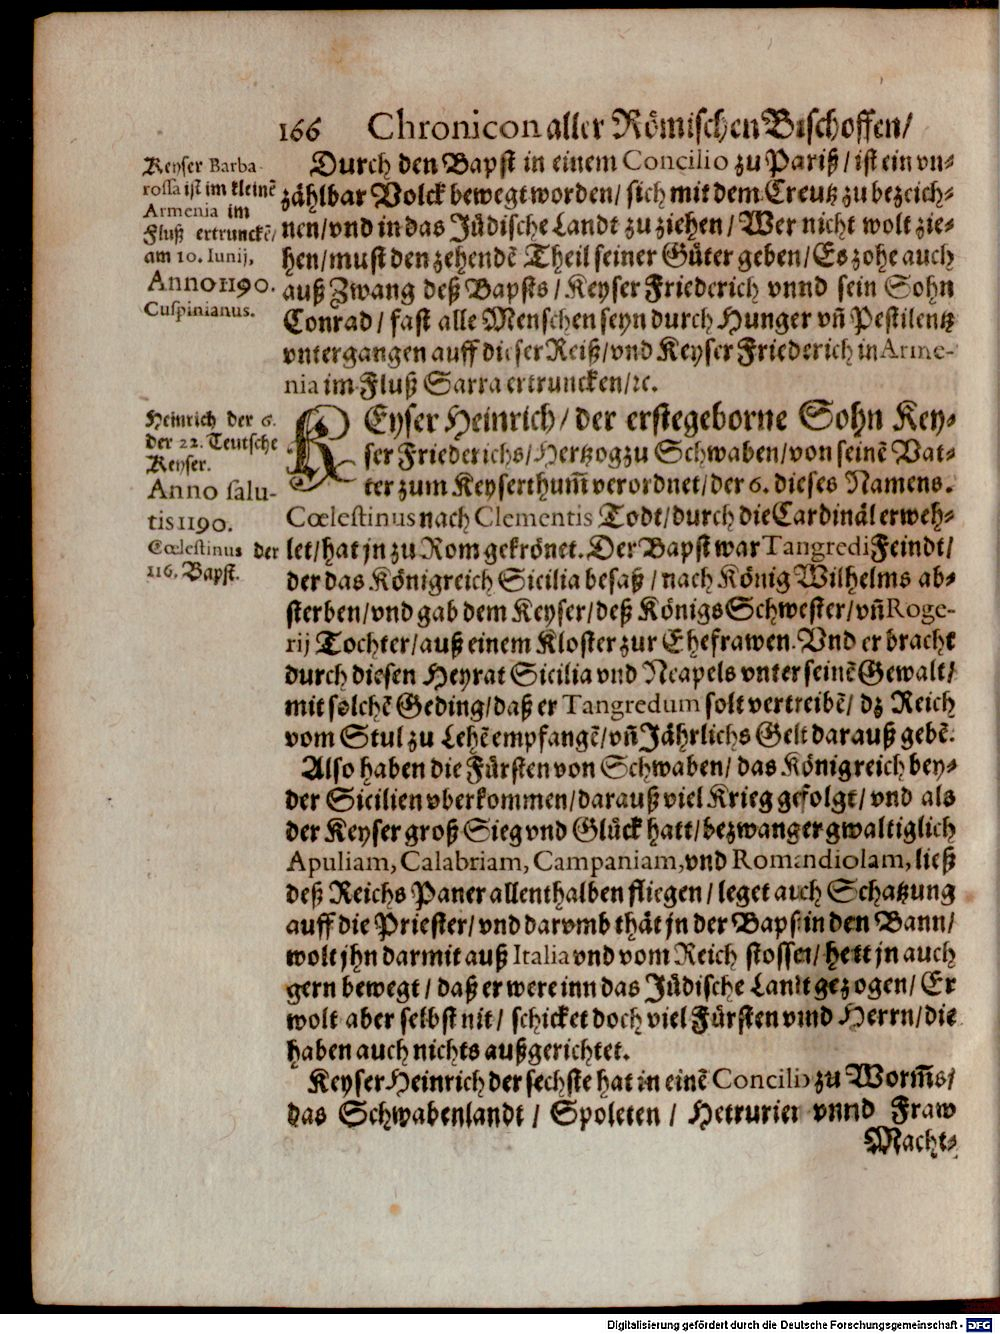 166 Chronicon aller Römischen Bischoffen/
Keyser Barba-
rossa ist im kleinē
Armenia im
Fluß ertrunckē/
am 10. Iunij,
Anno 1190.
Cuspinianus.
Durch den Bapst in einem Concilio zu Pariß/ ist ein vn-
zählbar Volck bewegt worden/ sich mit dem Creutz zu bezeich-
nen/ vnd in das Jüdische Landt zu ziehen/ Wer nicht wolt zie-
hen/ must den zehendē Theil seiner Güter geben/ Es zohe auch
auß Zwang deß Bapsts/ Keyser Friederich vnnd sein Sohn
Conrad/ fast alle Menschen seyn durch Hunger vñ Pestilentz
vntergangen auff dieser Reiß/ vnd Keyser Friederich in Arme-
nia im Fluß Sarra ertruncken/ ꝛc.
Heinrich der 6.
der 22. Teutsche
Keyser.
Anno salu-
tis 1190.
Cœlestinus der
116. Bapst.
KEyser Heinrich/ der erstegeborne Sohn Key-
ser Friederichs/ Hertzog zu Schwaben/ von seinē Vat-
ter zum Keyserthum̄ verordnet/ der 6. dieses Namens.
Cœlestinus nach Clementis Todt/ durch die Cardinäl erweh-
let/ hat jn zu Rom gekrönet. Der Bapst war Tangredi Feindt/
der das Königreich Sicilia besaß/ nach König Wilhelms ab-
sterben/ vnd gab dem Keyser/ deß Königs Schwester/ vñ Roge-
rij Tochter/ auß einem Kloster zur Ehefrawen. Vnd er bracht
durch diesen Heyrat Sicilia vnd Neapels vnter seinē Gewalt/
mit solchē Geding/ daß er Tangredum solt vertreibē/ dz Reich
vom Stul zu Lehē empfangē/ vñ Jährlichs Gelt darauß gebē.
Also haben die Fürsten von Schwaben/ das Königreich bey-
der Sicilien vberkommen/ darauß viel Krieg gefolgt/ vnd als
der Keyser groß Sieg vnd Glück hatt/ bezwang er gwaltiglich
Apuliam, Calabriam, Campaniam, vnd Romandiolam, ließ
deß Reichs Paner allenthalben fliegen/ leget auch Schatzung
auff die Priester/ vnd darvmb thät jn der Bapst in den Bann/
wolt jhn darmit auß Italia vnd vom Reich stossen/ hett jn auch
gern bewegt/ daß er were inn das Jüdische Landt gezogen/ Er
wolt aber selbst nit/ schicket doch viel Fürsten vnnd Herrn/ die
haben auch nichts außgerichtet.
Keyser Heinrich der sechste hat in einē Concilio zu Worm̄s/
das Schwabenlandt/ Spoleten/ Hetrurien vnnd Fraw
Macht-
Digitalisierung gefördert durch die Deutsche Forschungsgemeinschaft - DFG